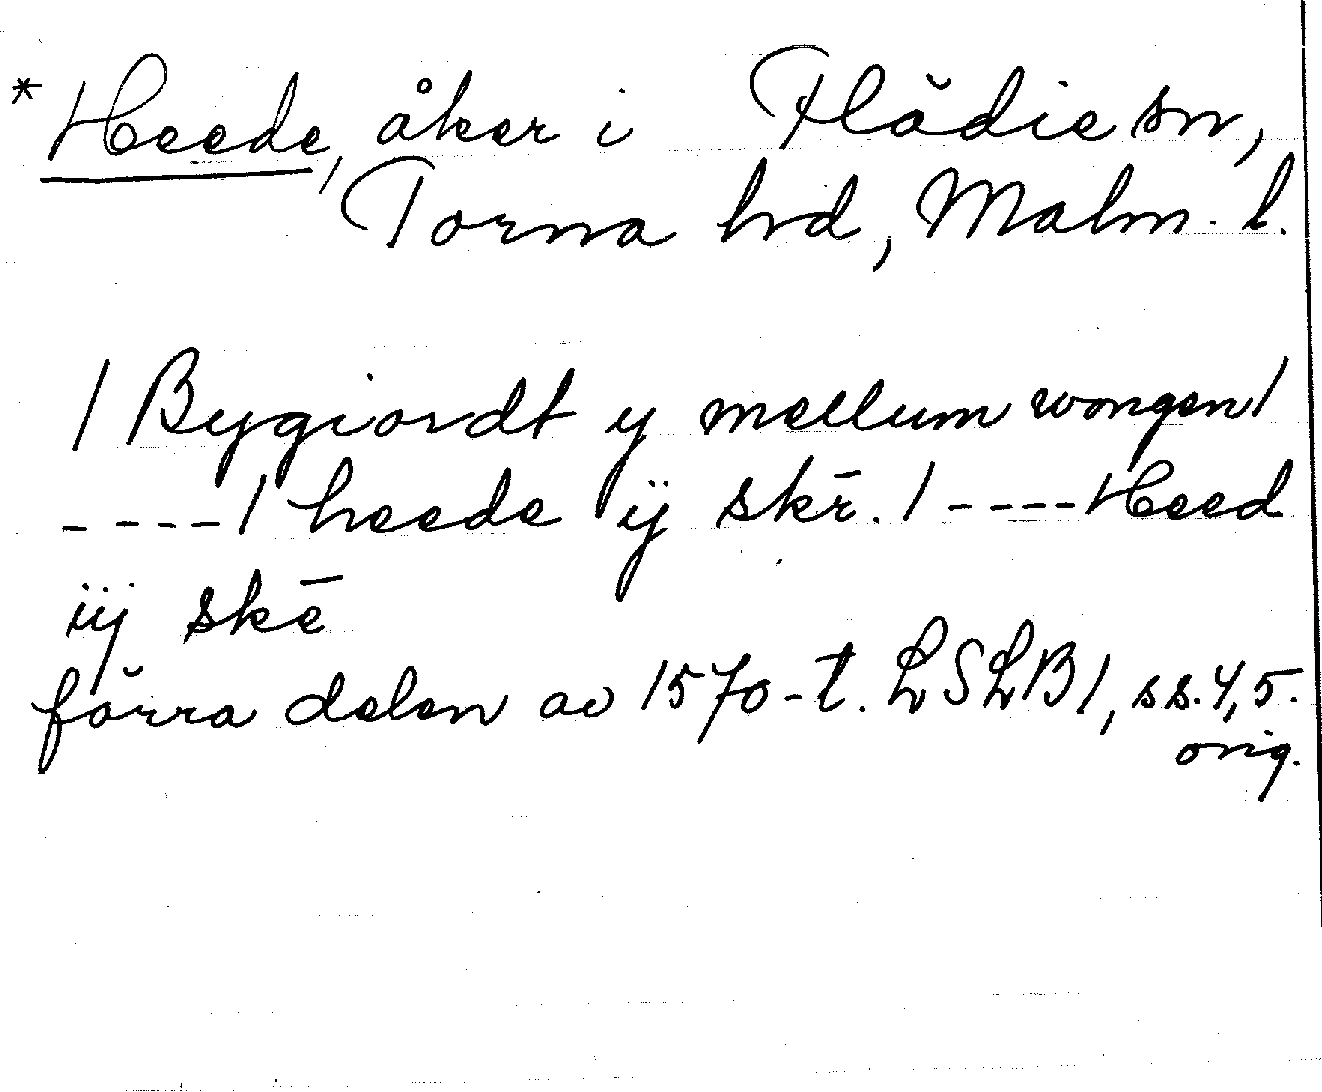 *Heede, åker i Flädie sn,
Torna hd, Malm. l.
/ Bygiordt y mellum wongen /
----/ heede ÿ skr̄. / ---- Heed
iij skē
förra delen av 1570-t. LSLB 1, ss. 4, 5.
orig.